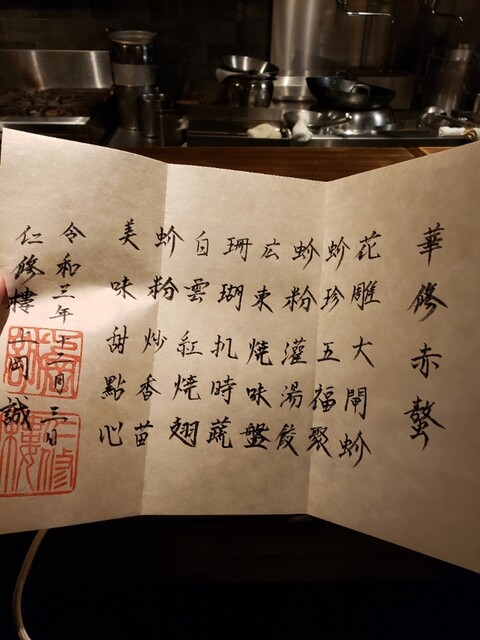 華修赤螯
花雕大閘蚧
蚧珍五福聚
蚧粉灌湯餃
広東焼味盤
珊瑚扒時蔬
白雲紅焼翅
蚧粉炒香苗
美味甜點心
令和三年十二月三日
仁修樓 上岡誠